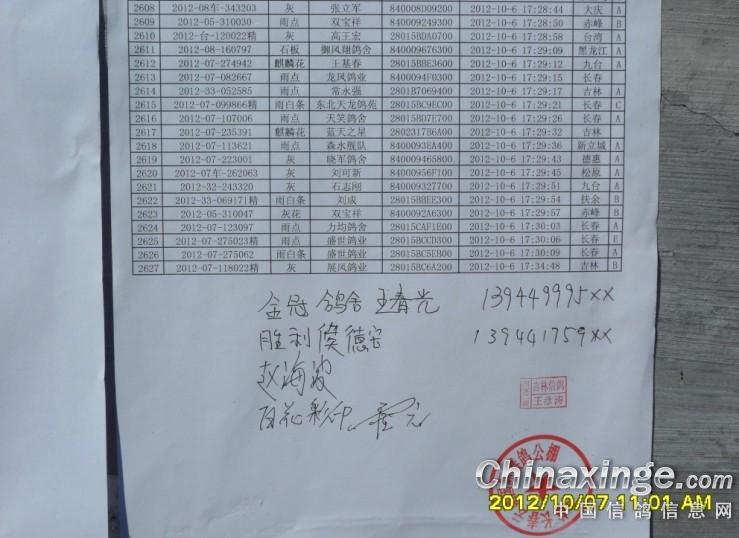 2608 2012-08车-343203 灰 张立军 840008D09200 2012-10-6 17:28:44 大庆 A
2609 2012-05-310030 雨点 双宝祥 8400009249300 2012-10-6 17:28:50 赤峰 B
2610 2012-台-120022精 灰 高王宏 28015BDA0700 2012-10-6 17:28:58 台湾 A
2611 2012-08-160797 石板 御风翔鸽舍 8400009676300 2012-10-6 17:29:09 黑龙江 A
2612 2012-07-274942 麒麟花 王基春 28015BBE3600 2012-10-6 17:29:12 九台 A
2613 2012-07-082667 雨点 龙凤鸽业 8400094F0300 2012-10-6 17:29:15 长春
2614 2012-33-052585 雨点 常永强 2801B7069400 2012-10-6 17:29:17 吉林 A
2615 2012-07-099866精 雨白条 东北天龙鸽苑 28015BC9EC00 2012-10-6 17:29:21 长春 C
2616 2012-07-107006 雨点 天笑鸽舍 28015BD7E700 2012-10-6 17:29:26 长春 A
2617 2012-07-235391 麒麟花 蓝天之星 2802317B6A00 2012-10-6 17:29:32 吉林
2618 2012-07-113621 雨点 森水舰队 8400093EA400 2012-10-6 17:29:36 新立城 A
2619 2012-07-223001 灰 晓军鸽舍 8400009465800 2012-10-6 17:29:43 德惠 A
2620 2012-07车-262063 灰 刘可新 840000956F100 2012-10-6 17:29:45 松原 A
2621 2012-32-243320 灰 石志刚 8400009327700 2012-10-6 17:29:51 九台 A
2622 2012-33-069171精 雨白条 刘成 28015BBEE300 2012-10-6 17:29:54 扶余 B
2623 2012-05-310047 灰花 双宝祥 8400092A6300 2012-10-6 17:29:57 赤峰 B
2624 2012-07-123097 雨点 力均鸽舍 28015CAF1E00 2012-10-6 17:30:03 长春 A
2625 2012-07-275023精 雨点 盛世鸽业 28015BCCD300 2012-10-6 17:30:06 长春 E
2626 2012-07-275062 雨白条 盛世鸽业 28015BC5EB00 2012-10-6 17:30:09 长春 A
2627 2012-07-118022精 灰 展风鸽业 28015BC6A200 2012-10-6 17:34:48 吉林 B
金冠鸽舍 王春光 139449995××
胜利 侯德安 139441759××
赵海波
百花彩印
吉林信鸽
王彦涛
鸽公棚
Chinaxinge.com
2012/10/07 11:01 AM
中国信鸽信息网